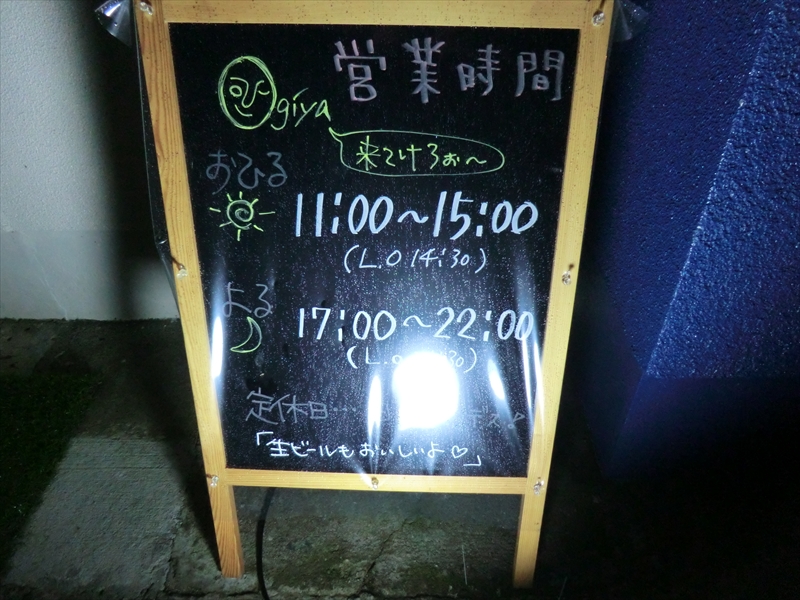 営業時間
Ogiya
来てけろぉ〜
おひる
11:00〜15:00
(L.O 14:30)
よる
17:00〜22:00
(L.o :30)
定休日… デス♪
「生ビールもおいしいよ♡」